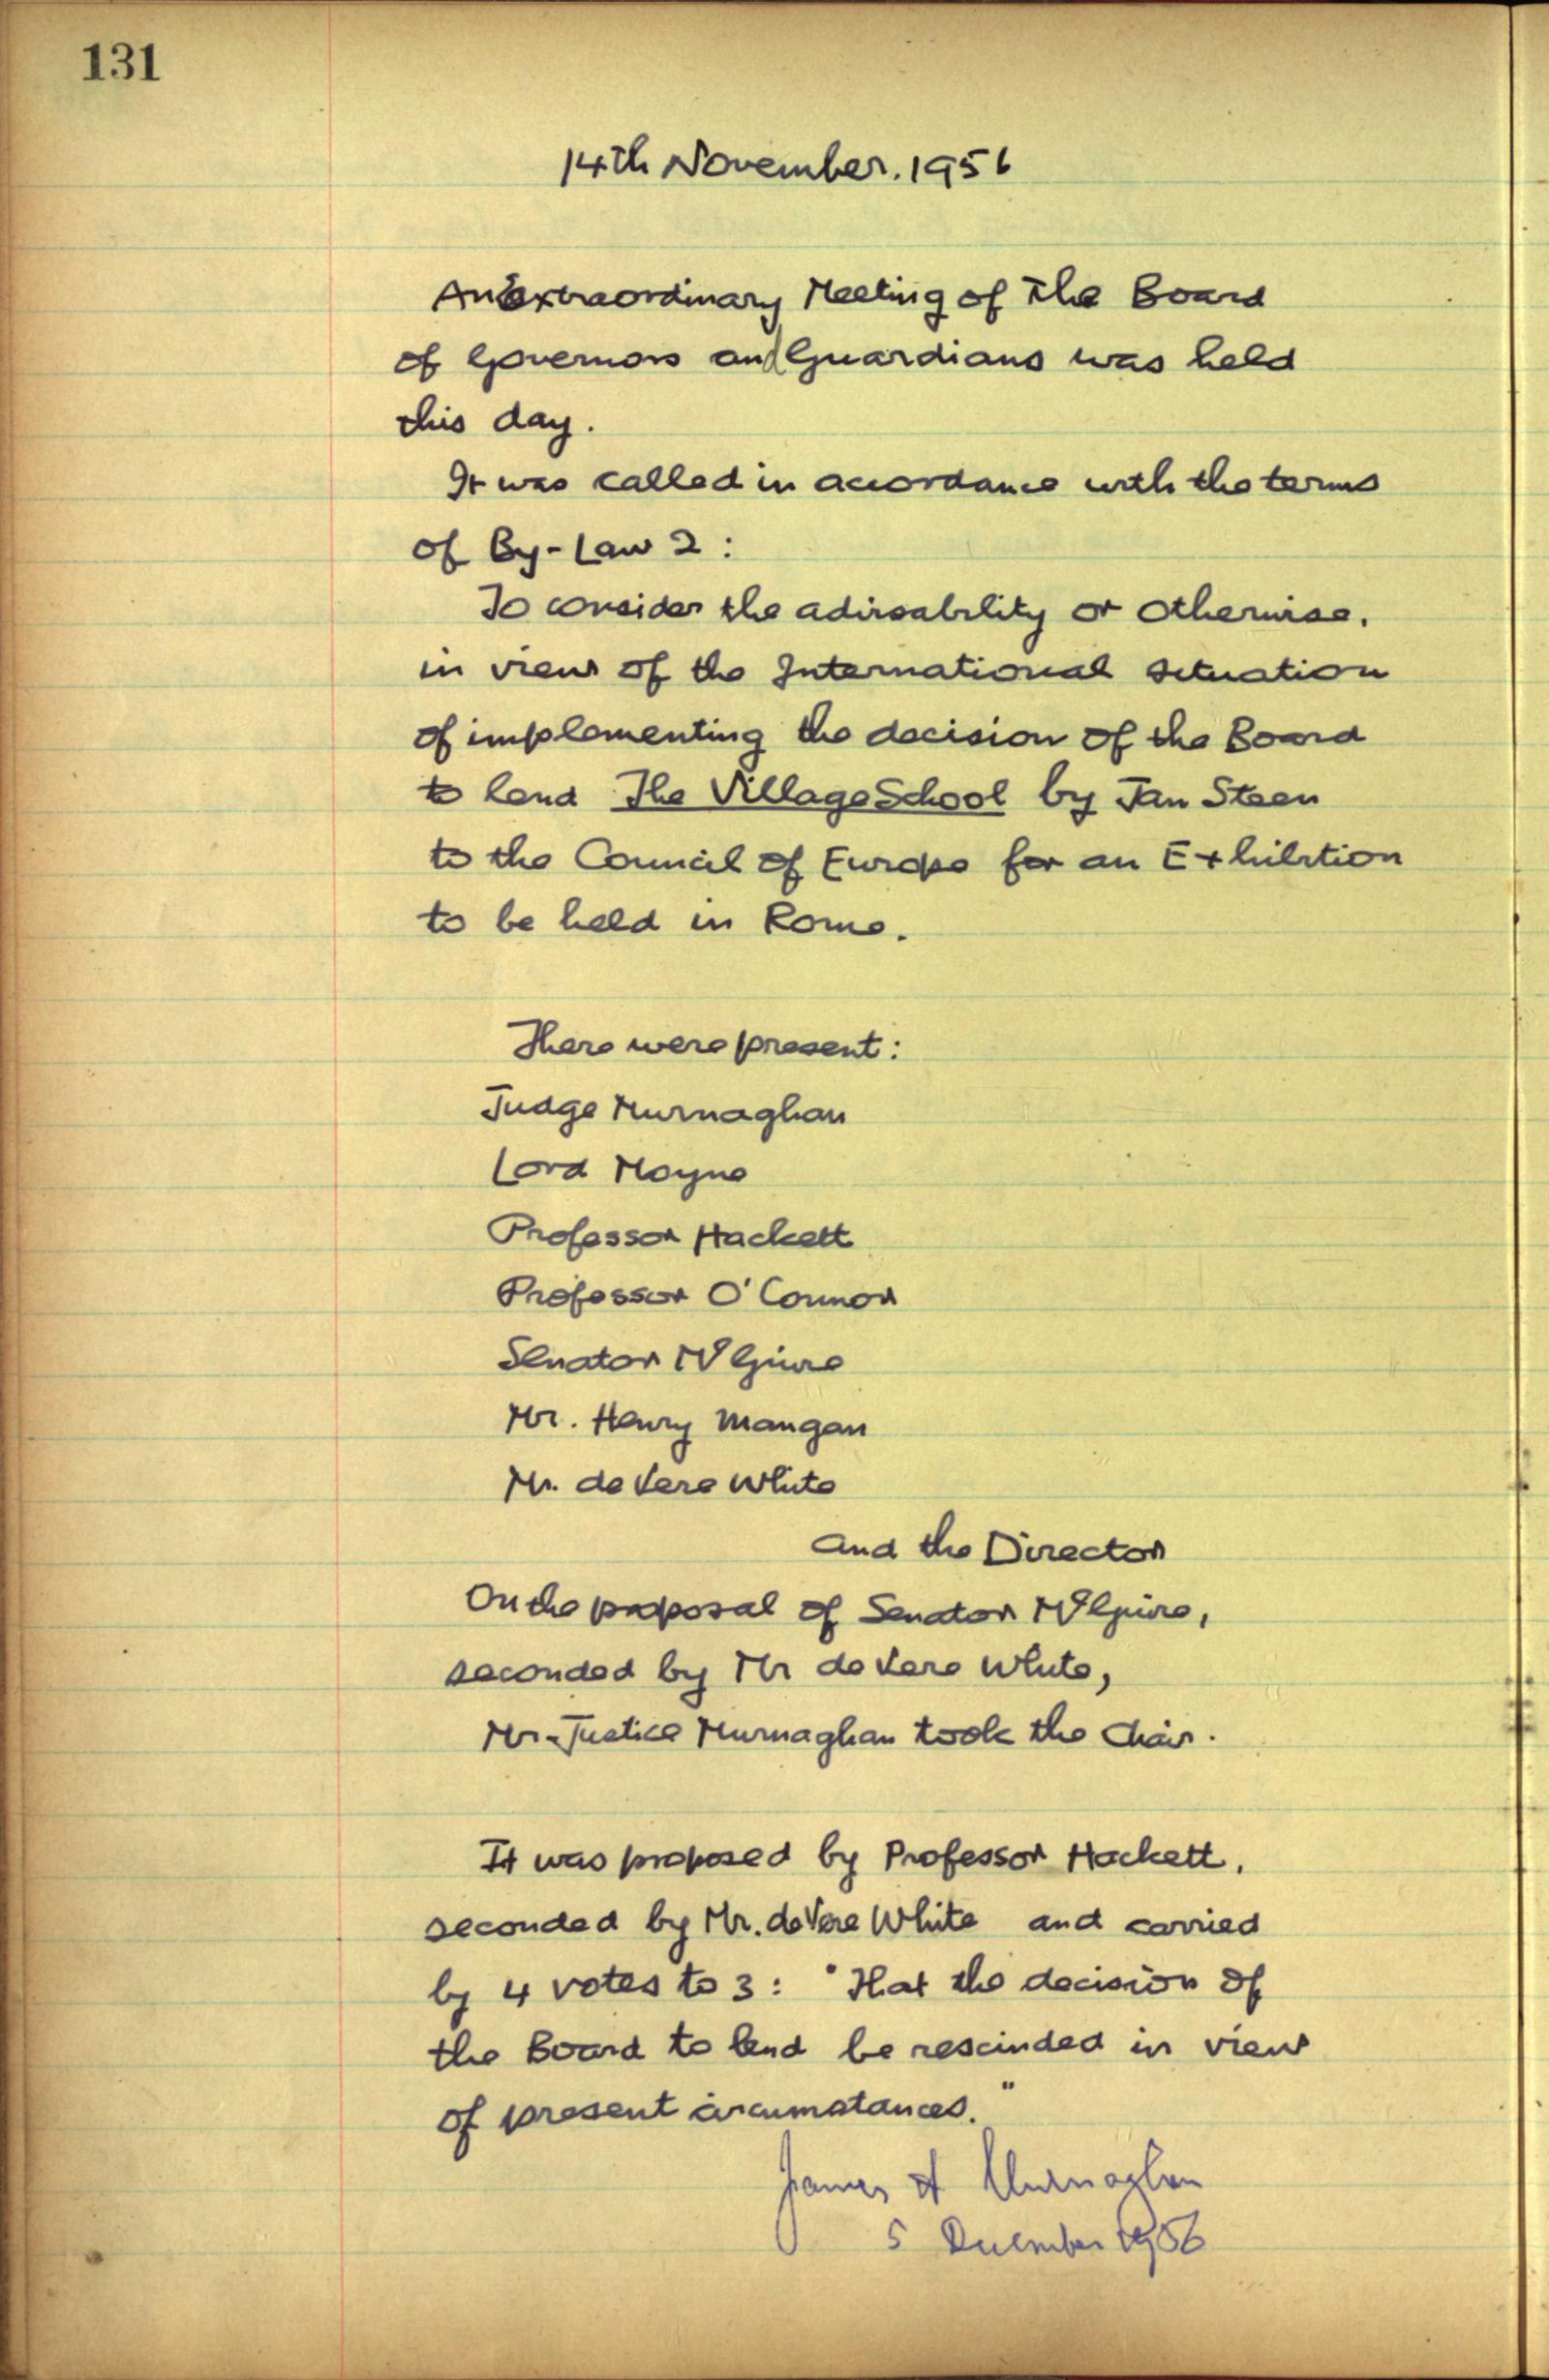 131
14th November. 1956
An Extraordinary Meeting of The Board
of Governors and Guardians was held
this day.
It was called in accordance with the terms
of By-Law 2:
To consider the adirsability or otherwise.
in view of the International situation
of implementing the decision of the Board
to lend The Village School by Jan Steen
to the Council of Europe for an Exhibition
to be held in Rome.
There were present:
Judge Murnaghan
Lord Moyne
Professor Hackett
Professor O'Connor
Senator McGuire
Mr. Henry Mangan
Mr. de Vere White
and the Director
On the proposal of Senator McGuire,
seconded by Mr de Vere White,
Mr. Justice Murnaghan took the Chair.
It was proposed by Professor Hackett,
seconded by Mr. de Vere White and carried
by 4 votes to 3: "That the decision of
the Board to lend be rescinded in view
of present circumstances."
James A Murnaghan
5 December 1956